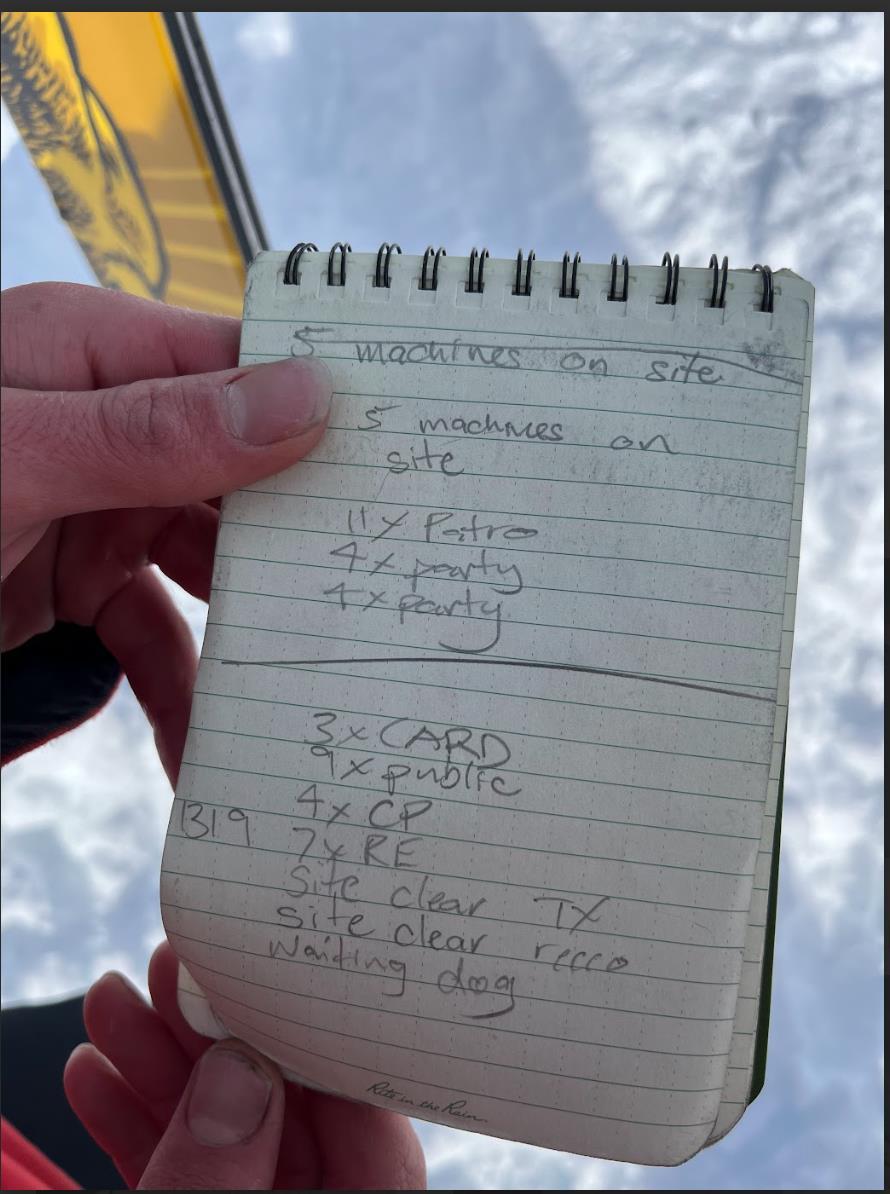 5 machines on site
5 machines on
site
11x Patro
4x party
4x party
3x CARD
9x public
4x CP
1319 7x RE
Site clear TX
Site clear recco
Waiting dog
Rite in the Rain